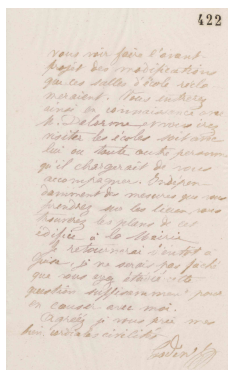 422
vous voir faire l'avant
projet des modifications
que ces salles d'école récla
meraient. Vous entrerez
ainsi en connaissance avec
M. et vous irez
visiter les écoles soit avec
lui ou toute autre personne
qu'il chargerait de vous
accompagner. Indépen
damment des mesures que vous
prendrez sur les lieux, vous
trouverez les plans de ces
édifices à la Mairie
Je retournerai bientôt à
Guise, je ne serais pas fâché
que vous ayez étudié cette
question suffisamment pour
en causer avec moi.
Agréez je vous prie mes
bien cordiales civilités
Godin